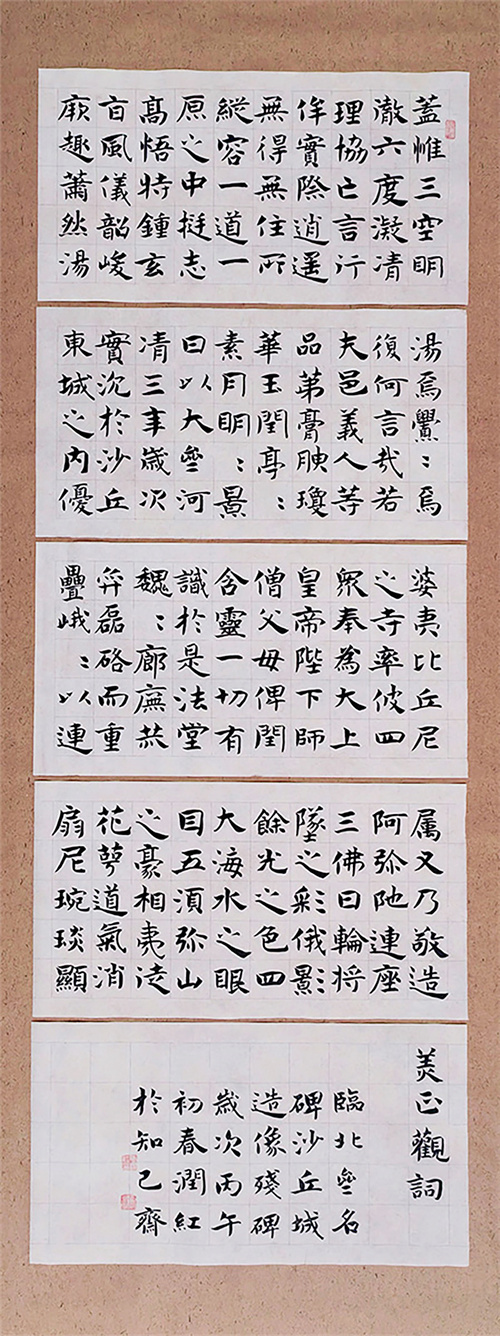 蓋惟三空明
澈六度凝清
理協亡言行
侔實際逍遥
無得無住所
縱容一道一
原之中挺志
高悟特鍾玄
百風儀韶峻
厥趣蕭然湯
湯焉舋:焉
復何言哉若
夫邑義人等
品第膏腴瓊
華玉閏亭:
素月明:景
曰以大齊河
清三年歲次
實沉於沙丘
東城之内優
婆夷比丘尼
之寺率彼四
衆奉為大上
皇帝陛下師
僧父母俾閏
含靈一切有
識於是法堂
魏:廊廡恭
弈磊硌而重
疊峨:以連
属又乃敬造
阿弥陁連座
三佛日輪将
墜之彩俄影
餘光之色四
大海水之眼
目五湏弥山
之豪相夷徒
花萼道氣消
扇尼琬琰顯
美正觀詞
臨北齊名
碑沙丘城
造像殘碑
歲次丙午
初春潤紅
於知己齋